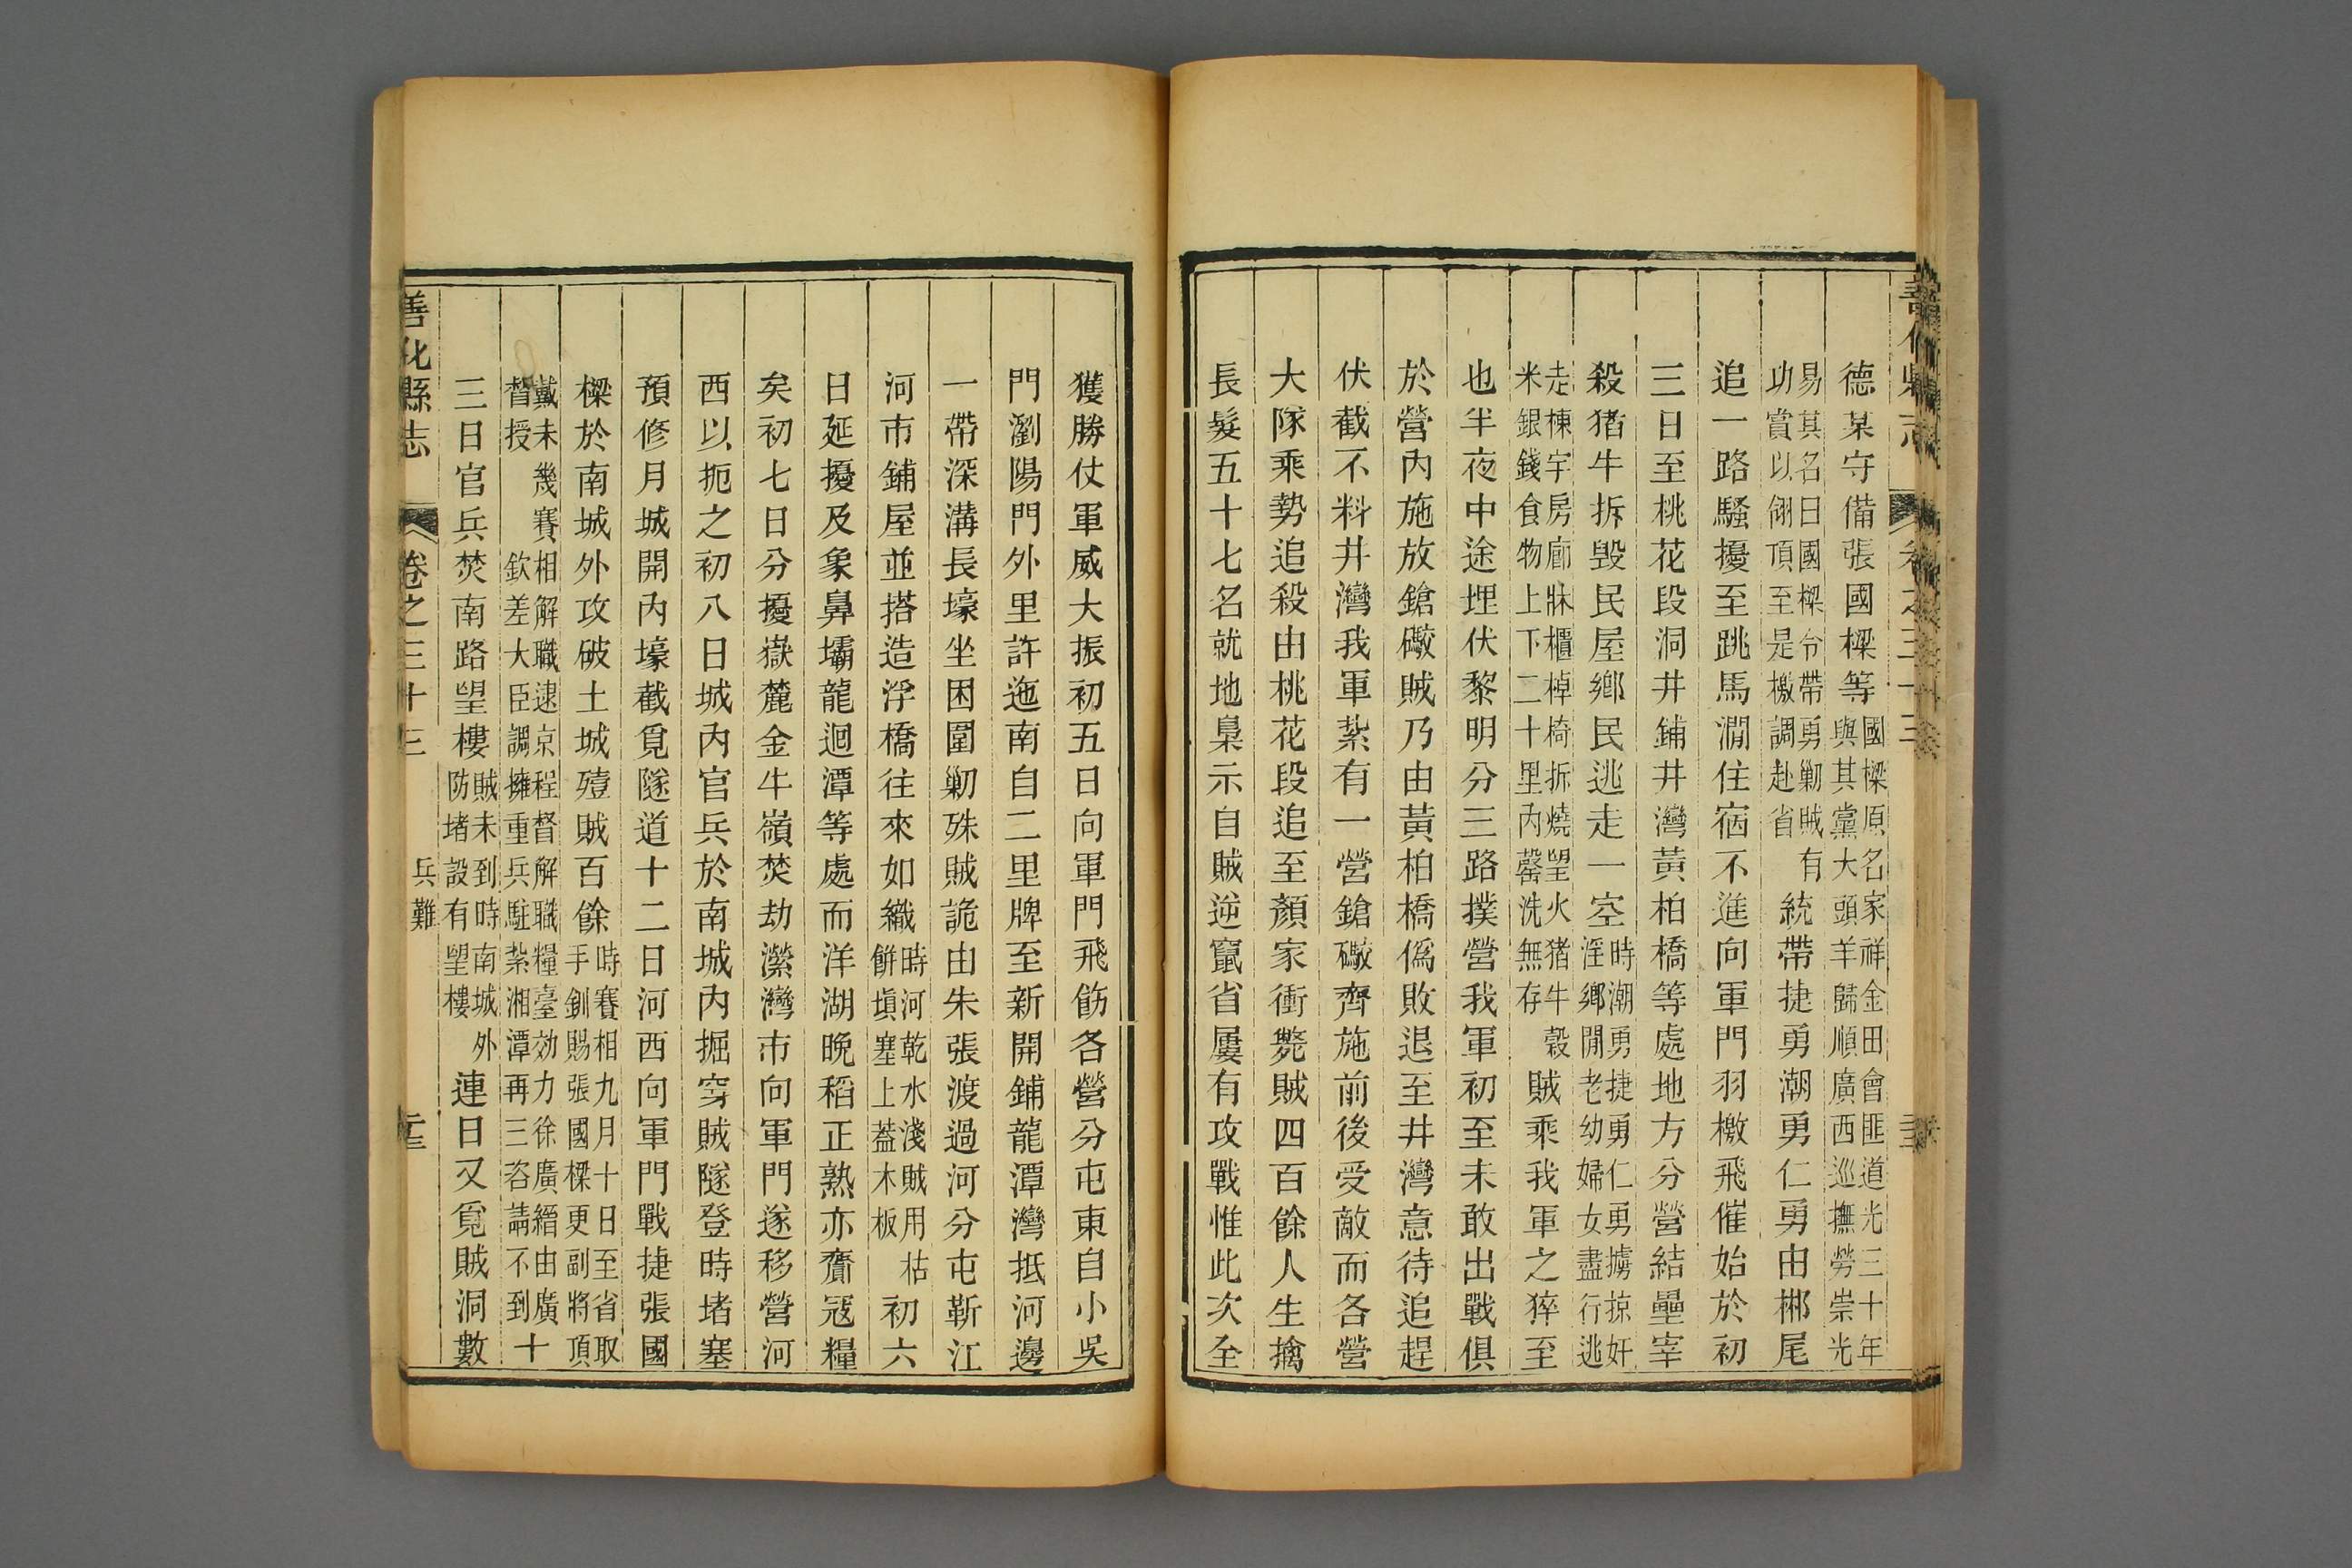 善化縣志 卷之三十三
德某守備張國樑等國樑原名家祥金田會匪道光三十年與其黨大頭羊歸順廣西巡撫勞崇光
易其名曰國樑令帶勇勦賊有功賞以翎頂至是檄調赴省統帶捷勇潮勇仁勇由郴尾
追一路騷擾至跳馬澗住宿不進向軍門羽檄飛催始於初
三日至桃花段洞井鋪井灣黃柏橋等處地方分營結壘宰
殺猪牛拆毀民屋鄉民逃走一空時潮勇捷勇仁勇擄掠奸淫鄉閒老幼婦女盡行逃
走棟宇房廊牀櫃棹椅拆燒望火猪牛穀米銀錢食物上下二十里內罄洗無存賊乘我軍之猝至
也半夜中途埋伏黎明分三路撲營我軍初至未敢出戰俱
於營內施放鎗礮賊乃由黃柏橋僞敗退至井灣意待追趕
伏截不料井灣我軍紮有一營鎗礮齊施前後受敵而各營
大隊乘勢追殺由桃花段追至顏家衝斃賊四百餘人生擒
長髮五十七名就地梟示自賊逆竄省屢有攻戰惟此次全
獲勝仗軍威大振初五日向軍門飛飭各營分屯東自小吳
門瀏陽門外里許迤南自二里牌至新開鋪龍潭灣抵河邊
一帶深溝長壕坐困圍勦殊賊詭由朱張渡過河分屯靳江
河市鋪屋並搭造浮橋往來如織時河乾水淺賊用枯餅塡塞上蓋木板初六
日延擾及象鼻壩龍迴潭等處而洋湖晚稻正熟亦齎寇糧
矣初七日分擾嶽麓金牛嶺焚劫濚灣市向軍門遂移營河
西以扼之初八日城內官兵於南城內掘穿賊隧登時堵塞
預修月城開內壕截覓隧道十二日河西向軍門戰捷張國
樑於南城外攻破土城殪賊百餘時賽相九月十日至省取手釧賜張國樑更副將頂
戴未幾賽相解職逮京程督解職糧臺効力徐廣縉由廣督授欽差大臣調擁重兵駐紮湘潭再三咨請不到十
三日官兵焚南路望樓賊未到時南城外防堵設有望樓連日又覓賊洞數
善化縣志 卷之三十三 兵難 二十三